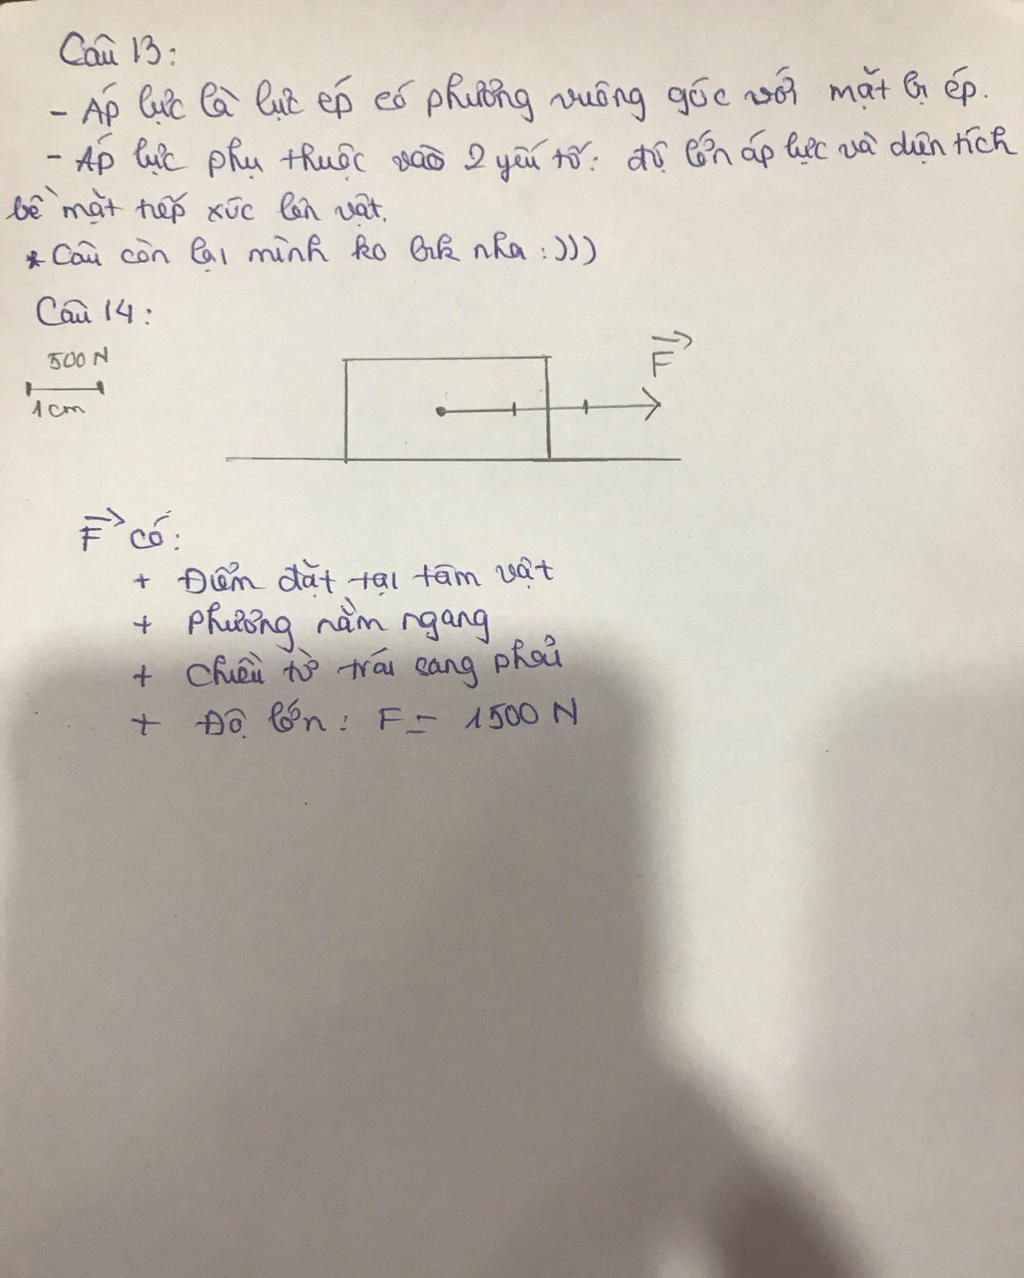 Câu 13:
- Áp lực là lực ép có phương vuông góc với mặt bị ép.
- Áp lực phụ thuộc vào 2 yếu tố: độ lớn áp lực và diện tích
bề mặt tiếp xúc lên vật.
* Câu còn lại mình ko brk nha :)))
Câu 14:
500 N
1cm
F
F có:
+ Điểm đặt tại tâm vật
+ Phương nằm ngang
+ Chiều từ trái sang phải
+ Độ lớn: F = 1500 N